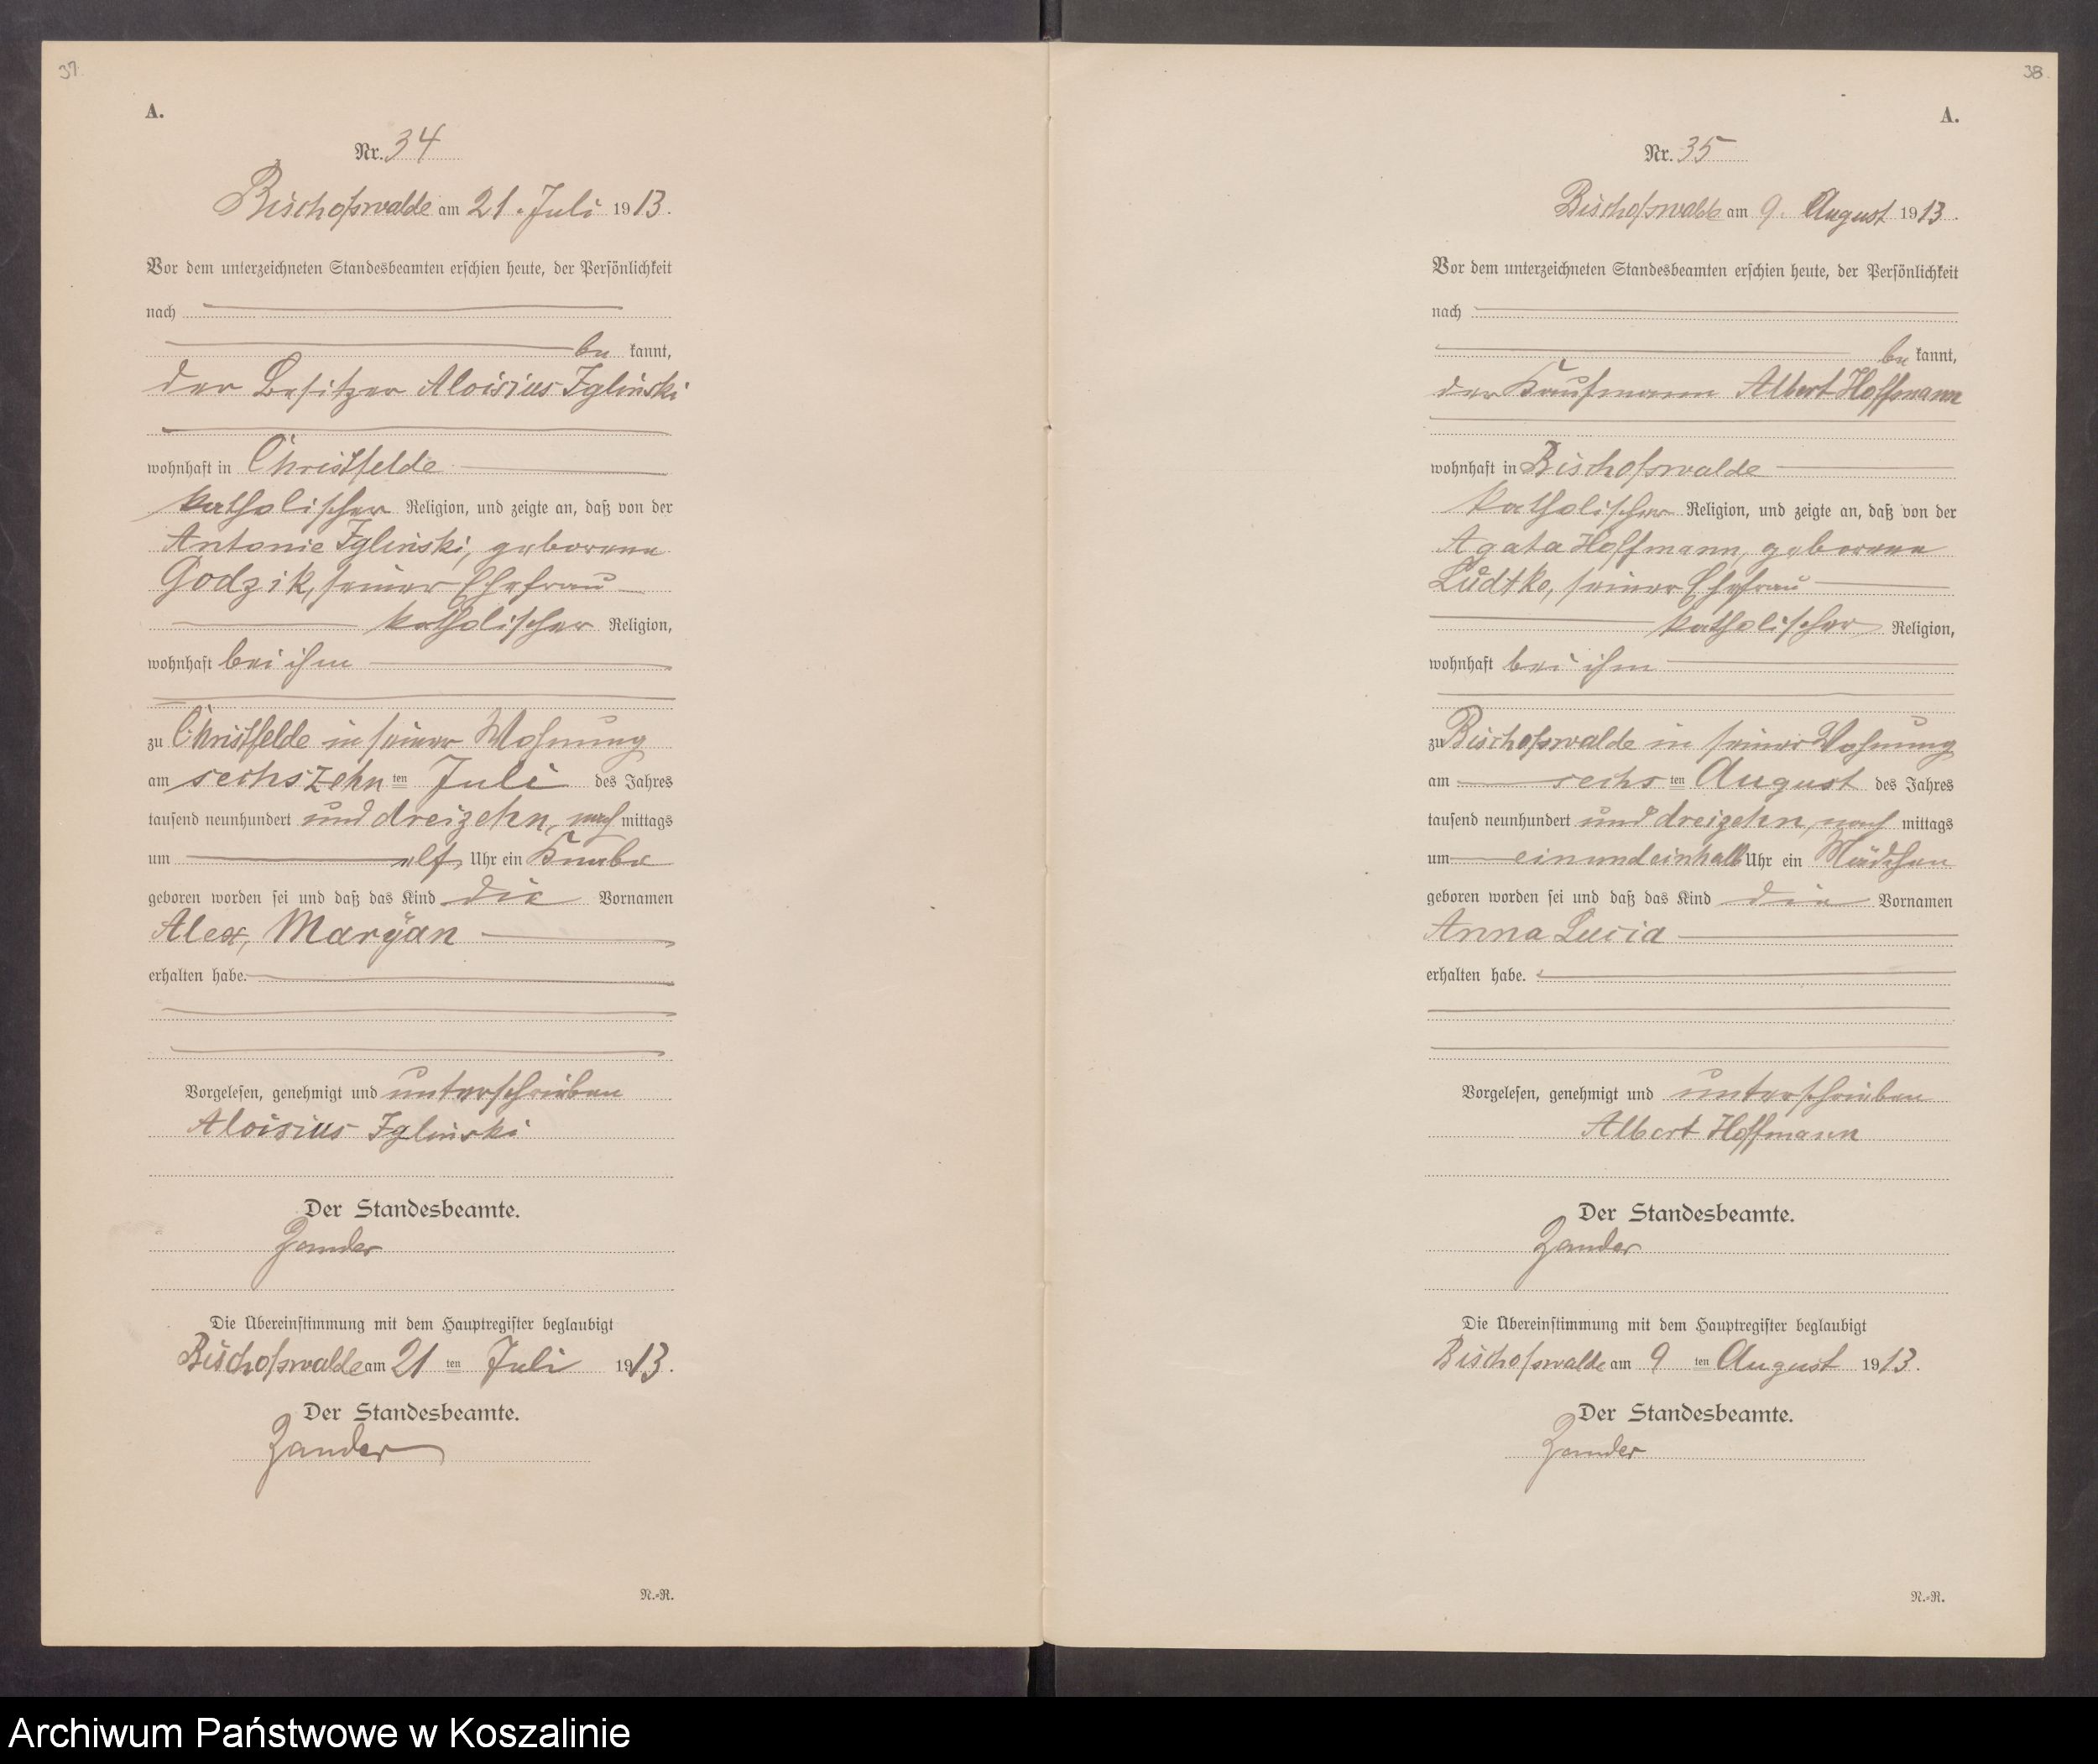 37.
A.
Nr. 34
Bischofswalde am 21. Juli 1913.
Vor dem unterzeichneten Standesbeamten erschien heute, der Persönlichkeit
nach
be kannt,
der Besitzer Aloisius Iglinski
wohnhaft in Christfelde
katholischer Religion, und zeigte an, daß von der
Antonie Iglinski, geborene
Godzik, seiner Ehefrau
katholischer Religion,
wohnhaft bei ihm
zu Christfelde in seiner Wohnung
am sechszehn ten Juli des Jahres
tausend neunhundert und dreizehn, nach mittags
um elf Uhr ein Knabe
geboren worden sei und daß das Kind die Vornamen
Alex, Maryan
erhalten habe.
Vorgelesen, genehmigt und unterschrieben
Aloisius Iglinski
Der Standesbeamte.
Zander
Die Übereinstimmung mit dem Hauptregister beglaubigt
Bischofswalde am 21 ten Juli 1913.
Der Standesbeamte.
Zander
N.-R.
38.
A.
Nr. 35
Bischofswalde am 9. August 1913.
Vor dem unterzeichneten Standesbeamten erschien heute, der Persönlichkeit
nach
be kannt,
der Kaufmann Albert Hoffmann
wohnhaft in Bischofswalde
katholischer Religion, und zeigte an, daß von der
Agata Hoffmann, geborene
Lüdtke, seiner Ehefrau
katholischer Religion,
wohnhaft bei ihm
zu Bischofswalde in seiner Wohnung
am sechs ten August des Jahres
tausend neunhundert und dreizehn, nach mittags
um einundeinhalb Uhr ein Mädchen
geboren worden sei und daß das Kind die Vornamen
Anna Lucia
erhalten habe.
Vorgelesen, genehmigt und unterschrieben
Albert Hoffmann
Der Standesbeamte.
Zander
Die Übereinstimmung mit dem Hauptregister beglaubigt
Bischofswalde am 9 ten August 1913.
Der Standesbeamte.
Zander
N.-R.
Archiwum Państwowe w Koszalinie